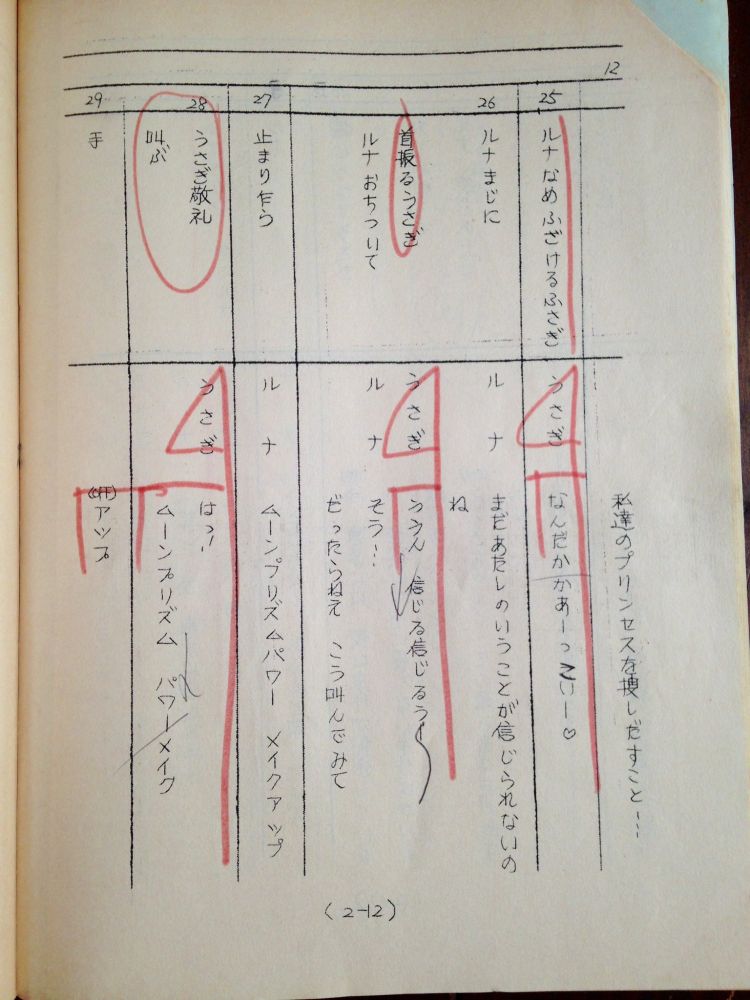 12
私達のプリンセスを捜しだすこと…
25
ルナなめふざけるふさぎ
うさぎ
なんだかかあーっこいー♡
26
ルナまじに
ルナ
まだあたしのいうことが信じられないの
ね
首振るうさぎ
うさぎ
ううん 信じる信じるうー
ルナおちついて
ルナ
そう…
だったらねえ こう叫んでみて
27
止まり乍ら
ルナ
ムーンプリズムパワー メイクアップ
28
うさぎ敬礼
うさぎ
はっ!!
叫ぶ
ムーンプリズム パワーメイク
29
手
(OFF)アップ
(2-12)